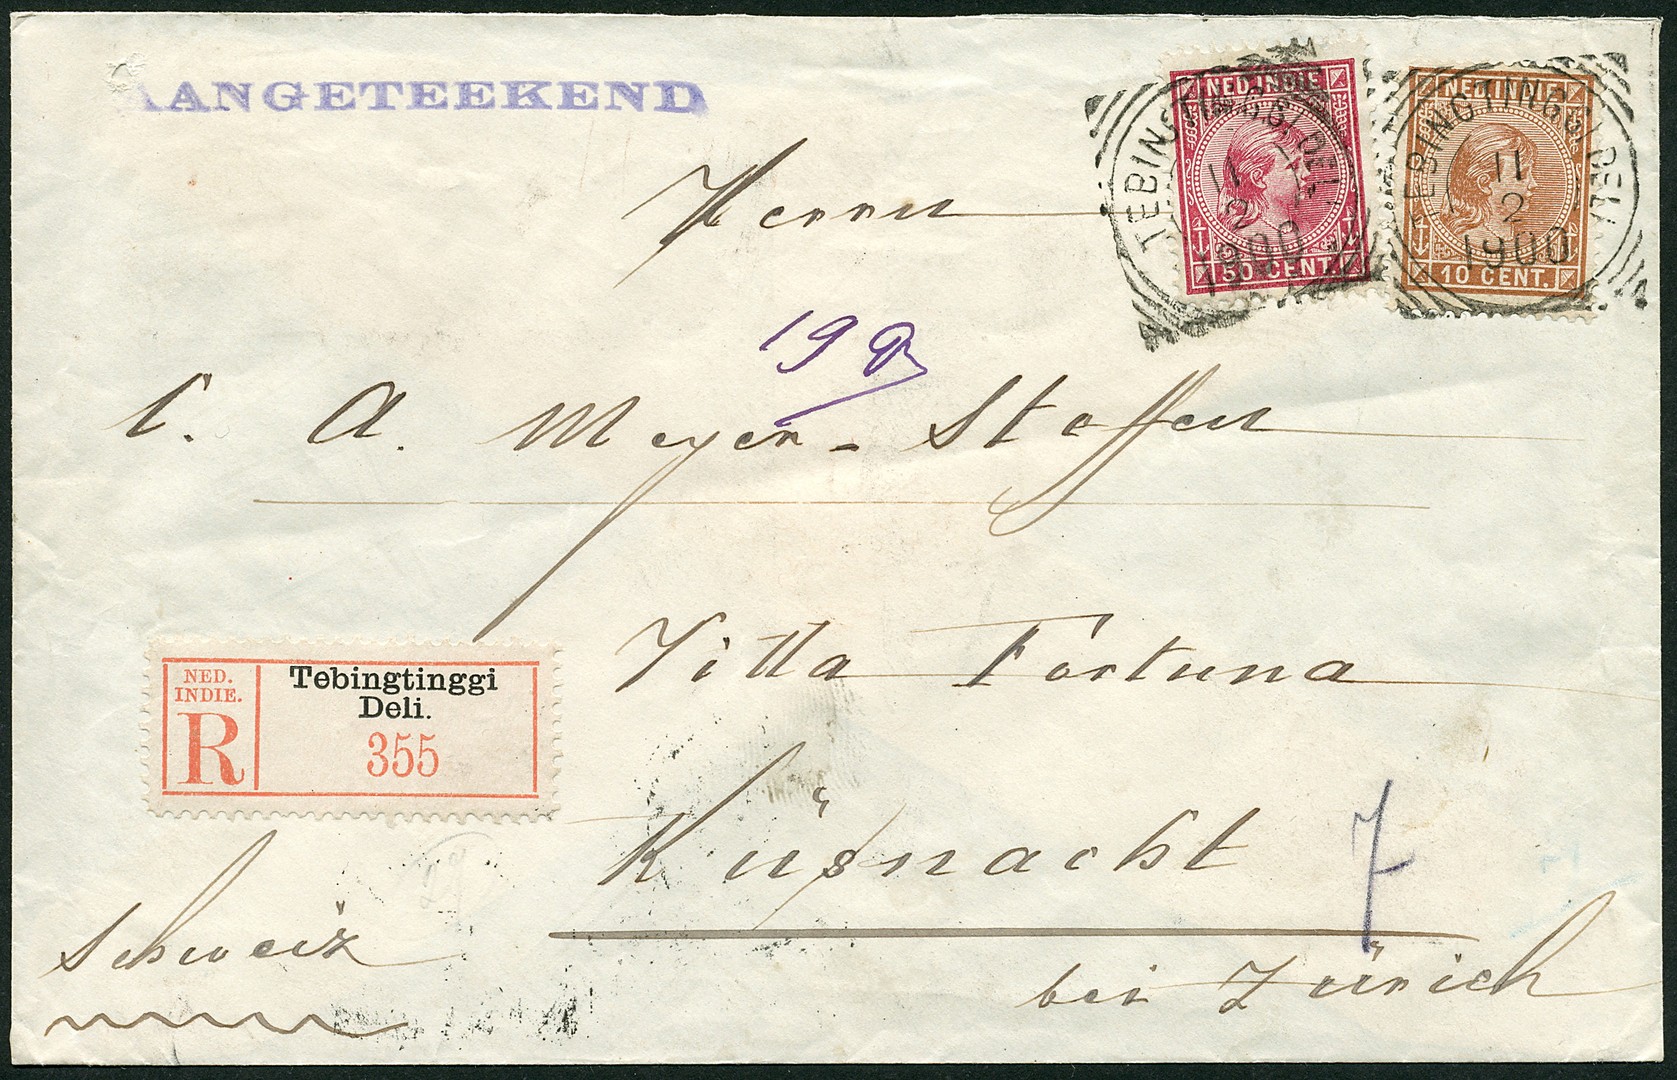 AANGETEEKEND
NED. INDIE
50 CENT.
NED. INDIE
10 CENT.
TEBINGTINGGI DELI
11
2
1900
TEBINGTINGGI DELI
11
2
1900
Herrn
19
C. A. Meyer-Staffen
Villa Fortuna
NED.
INDIE.
R
Tebingtinggi
Deli.
355
Küsnacht
7
Schweiz
bei Zürich